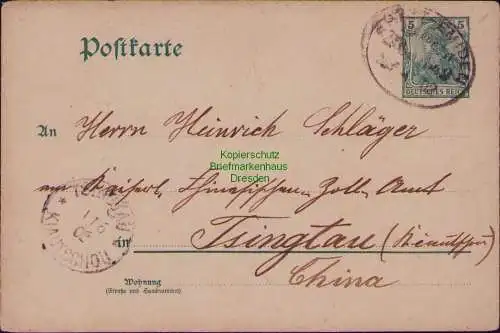 Postkarte
5 5
DEUTSCHES REICH
An Herrn Heinrich Schläger
Kopierschutz
Briefmarkenhaus
Dresden
am Kaiserl. Chinesischen Zoll Amt
TSINGTAU
KIAUTSCHOU
in Tsingtau (Kiautschou)
China
Wohnung
(Straße und Hausnummer)